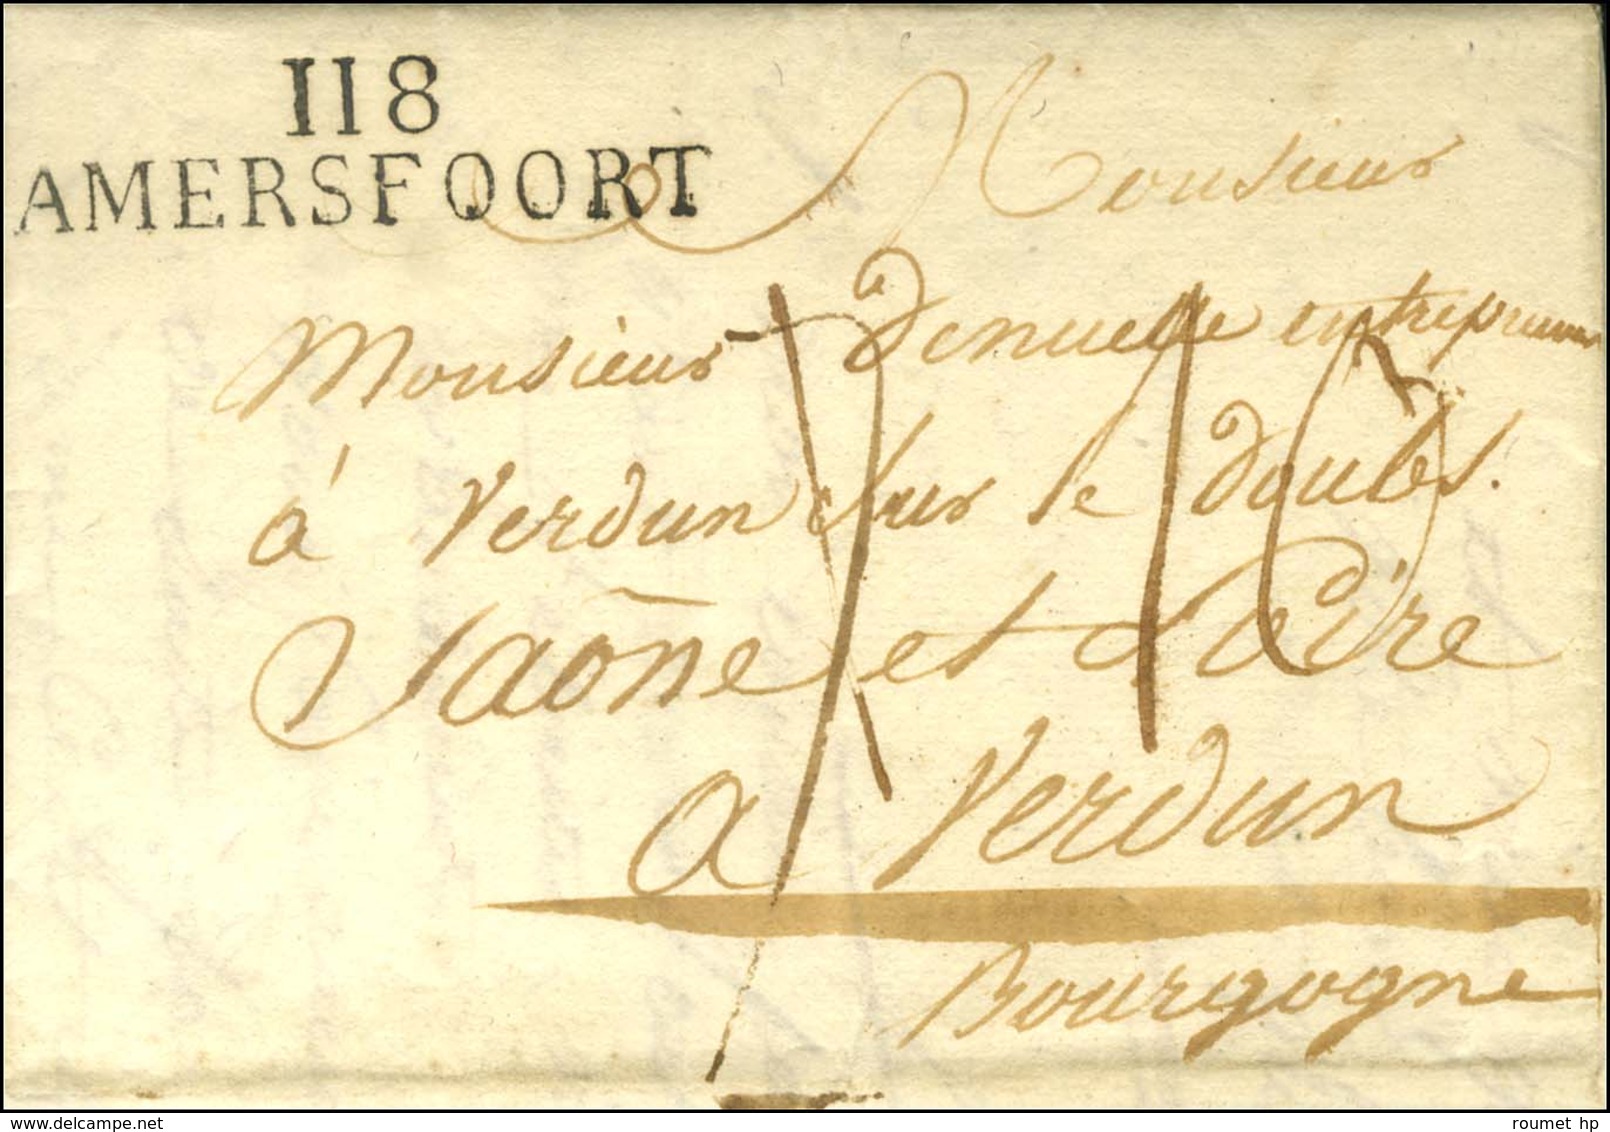 118
AMERSFOORT
Monsieur
Monsieur denuelle entrepreneur
à Verdun sur le doubs.
Saône et Loire
a Verdun
Bourgogne
www.delcampe.net
roumet hp